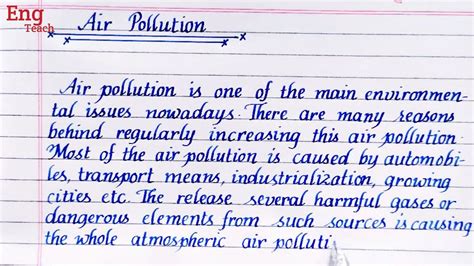 Eng
Teach
Air Pollution
Air pollution is one of the main environmen-
tal issues nowadays. There are many reasons
behind regularly increasing this air pollution
Most of the air pollution is caused by automobi-
les, transport means, industrialization, growing
cities etc. The release several harmful gases or
dangerous elements from such sources is causing
the whole atmospheric air polluti